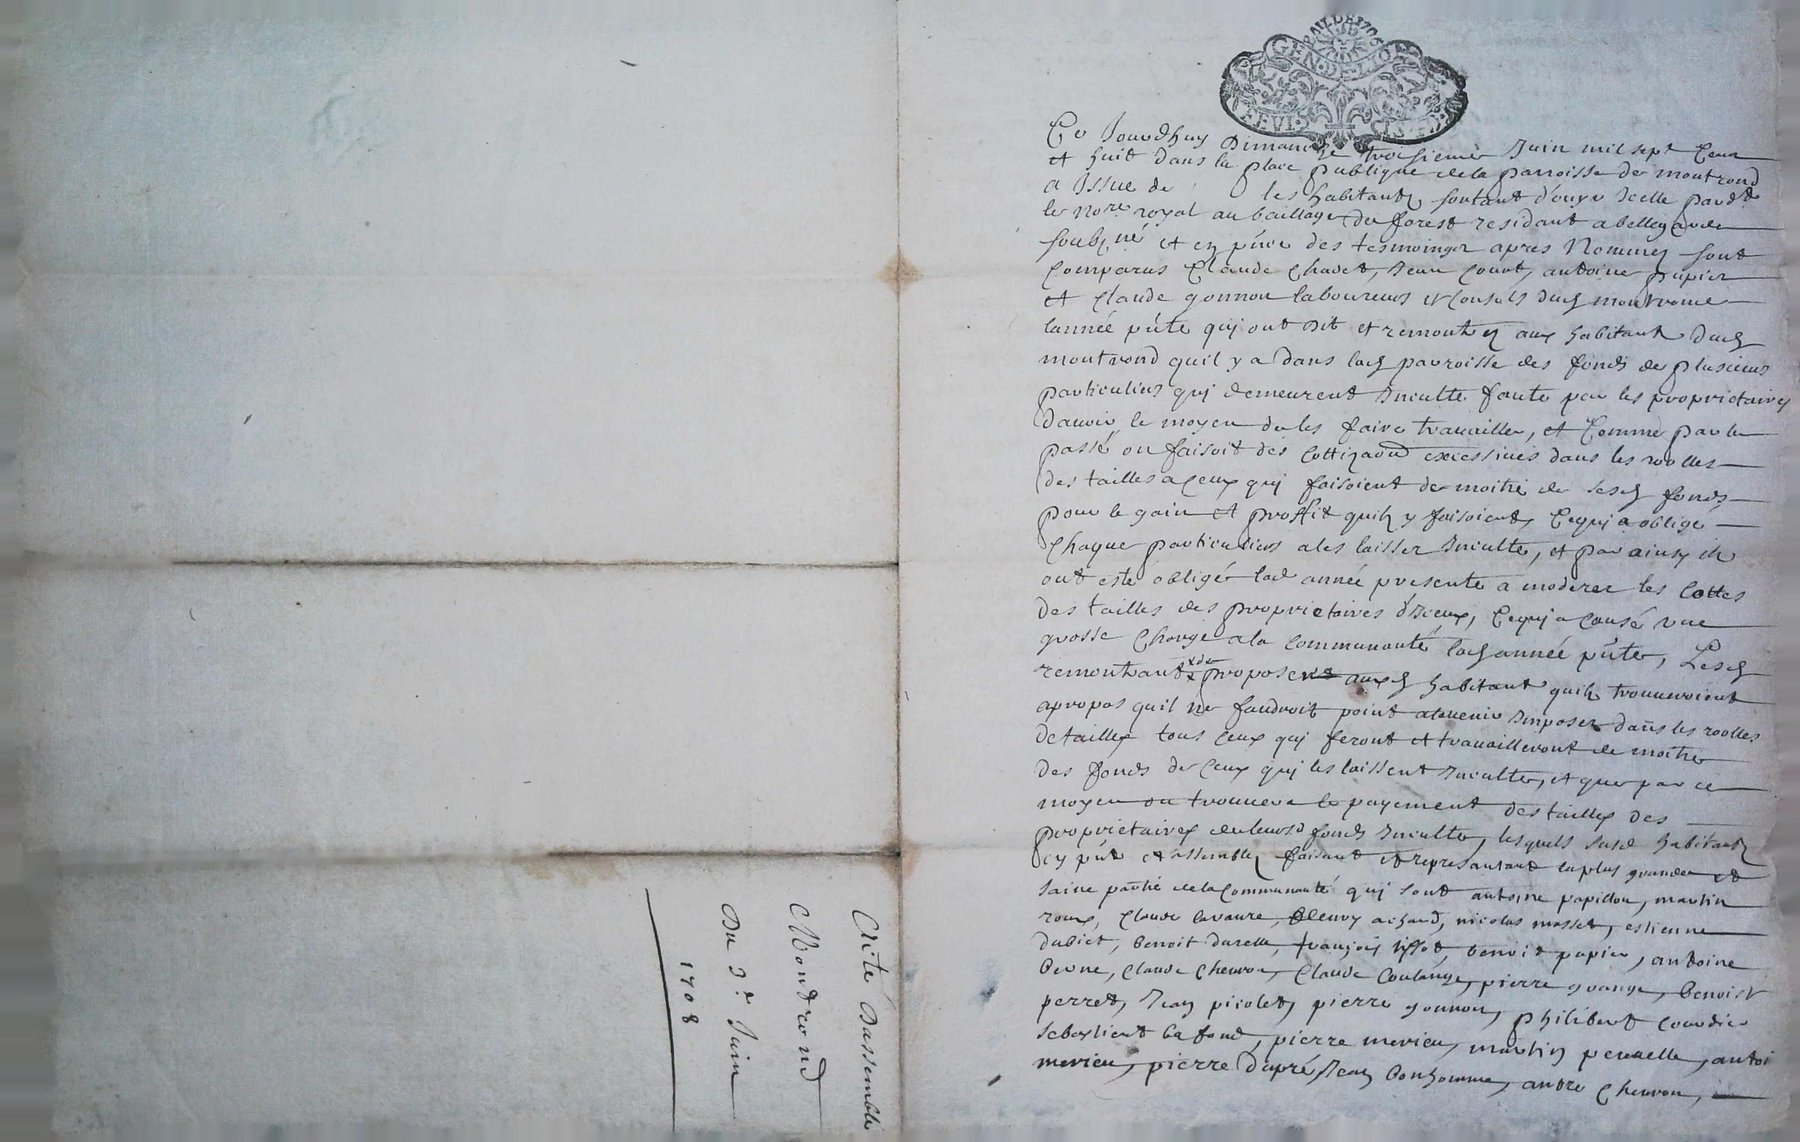 GEN DE LYO
Ce Jourdhuy Dimanche troisieme Juin mil sept Cent
et huit dans la place publique de la parroisse de montrond
a Issue de les habitants sortant d'ouyr Icelle pard.t
le No.re royal au bailliage de forest residant a bellegarde
soubz.né et en p̃nce des tesmoingz apres Nommez sont
Comparus Claude Chavet, Jean Couot, antoine pupier
et Claude gonnon laboureurs et Consuls dud montrond
lannée pn̄te quj ont dit et remontrez aux habitants dud
montrond quil y a dans lad parroisse des fonds de plusieurs
particuliers quj demeurent Inculte faute par les proprietaires
d'auoir le moyen de les faire trauailler, et Comme par le
passé on faisoit des Cottizaõns excessiues dans les roolles
des tailles a Ceux quj faisoient de moitié de sesd fonds
pour le gain et proffit quilz y faisoient, Cequj a obligé
Chaque particuliers a les laisser Inculte, et par ainsy ilz
ont esté obligés lad année presente a moderer les Cottes
des tailles des proprietaires d'Iceux, Cequj a Causé vne
grosse Charge a la Communauté lad année pn̄te, Lesd
remontrants proposent auxd habitants quilz trouueroient
apropos quil ne faudroit point alauenir Imposer dans les roolles
detailles tous Ceux quj feront et trauailleront de moitié
des fonds de Ceux quj les laissent Inculte, et que par ce
moyen on trouuera le payement des tailles des
proprietaires de leursd fonds Inculte, lesquels susd habitants
cy pn̄ts et assemblez faisant et representant la plus grande et
saine partie de la Communauté quj sont antoine papillon, martin
roux, Claude lavaure, fleury achard, nicolas masset, estienne
dubiet, benoit durelle, françois tissot, benoit papier, antoine
berne, Claude Cheuron, Claude Coulange, pierre grange, benoist
perret, Jean picolet, pierre gonnon, philibert Courdier
sebastient la fond, pierre merieu, martin peruelle, antoi
merieu, pierre dupré, Jean bonhomme, andre Cheuron,
Acte d'assemblé
Mondrond
Du 3.e Juin
1708